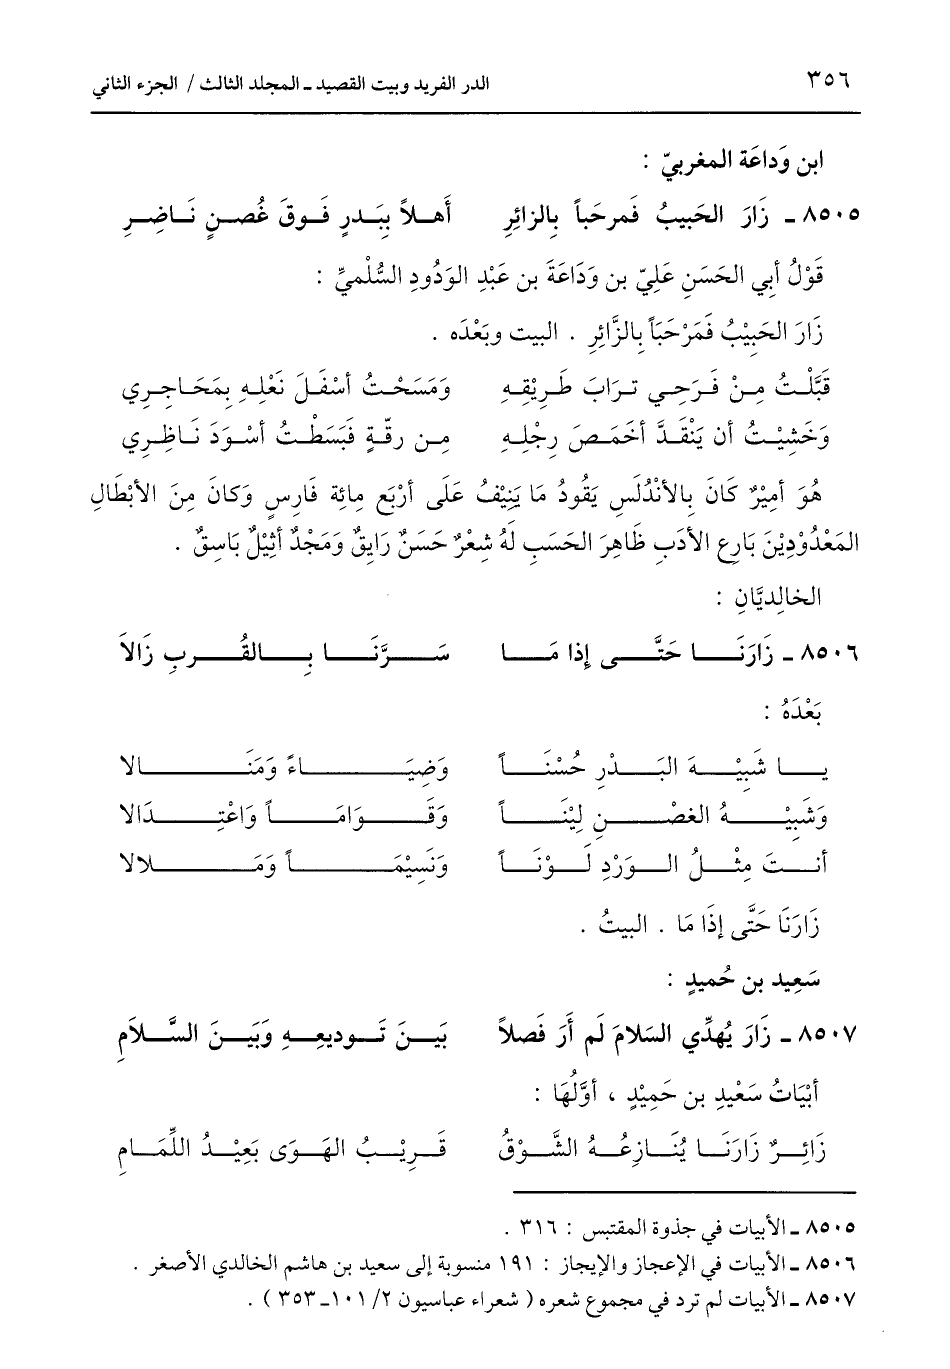 ٣٥٦ الدر الفريد وبيت القصيد ـ المجلد الثالث / الجزء الثاني
ابن وَداعَة المغربيّ :
٨٥٠٥ ـ زَارَ الحَبيبُ فَمرحَباً بِالزائِرِ أَهلاً بِبَدرٍ فَوقَ غُصنٍ نَاضِرِ
قَوْلُ أبي الحَسَنِ عَلِيّ بن وَدَاعَةَ بن عَبْدِ الوَدُودِ السُّلْميِّ :
زَارَ الحَبِيْبُ فَمَرْحَبَاً بِالزَّائِرِ . البيت وبَعْدَه .
قَبَّلْتُ مِنْ فَرَحِي ترَابَ طَرِيْقِهِ وَمَسَحْتُ أسْفَلَ نَعْلِهِ بِمَحَاجِري
وَخَشِيْتُ أن يَنْقَدَّ أخمَصَ رِجْلِهِ مِن رِقّةٍ فَبَسَطْتُ أسْوَدَ نَاظِري
هُوَ أمِيْرٌ كَانَ بِالأنْدُلُسِ يَقُودُ مَا يَنِيْفُ عَلَى أرْبَعِ مِائِة فَارِسٍ وَكانَ مِنَ الأبْطَالِ
المَعْدُوْدِيْنَ بَارِعِ الأدَبِ ظَاهِرَ الحَسَبِ لَهُ شِعْرٌ حَسَنٌ رَايِقٌ وَمَجْدٌ أثِيْلٌ بَاسِقٌ .
الخالِديَّانِ :
٨٥٠٦ ـ زَارَنَا حَتَّى إذا مَا سَرَّنَا بِالقُربِ زَالاَ
بَعْدَهُ :
يا شَبِيْهَ البَدْرِ حُسْنَاً وَضِيَاءً وَمَنَالا
وَشَبِيْهُ الغصْنِ لِيْنَاً وَقَوَامَاً وَاعْتِدَالا
أنتَ مِثْلُ الوَرْدِ لَوْنَاً وَنَسِيْمَاً وَمَلالا
زَارَنَا حَتَّى إذَا مَا . البيتُ .
سَعِيد بن حُميدٍ :
٨٥٠٧ ـ زَارَ يُهدِّي السَلامَ لَم أرَ فَصلاً بَينَ تَوديعِهِ وَبَينَ السَّلاَمِ
أبْيَاتُ سَعْيدِ بن حَمِيْدٍ ، أوَّلُهَا :
زَائِرٌ زَارَنَا يُنَازِعُهُ الشَّوْقُ قَرِيْبُ الهَوَى بَعِيْدُ اللِّمَامِ
٨٥٠٥ ـ الأبيات في جذوة المقتبس : ٣١٦ .
٨٥٠٦ ـ الأبيات في الإعجاز والإيجاز : ١٩١ منسوبة إلى سعيد بن هاشم الخالدي الأصغر .
٨٥٠٧ ـ الأبيات لم ترد في مجموع شعره ( شعراء عباسيون ٢/ ١٠١ـ ٣٥٣ ) .